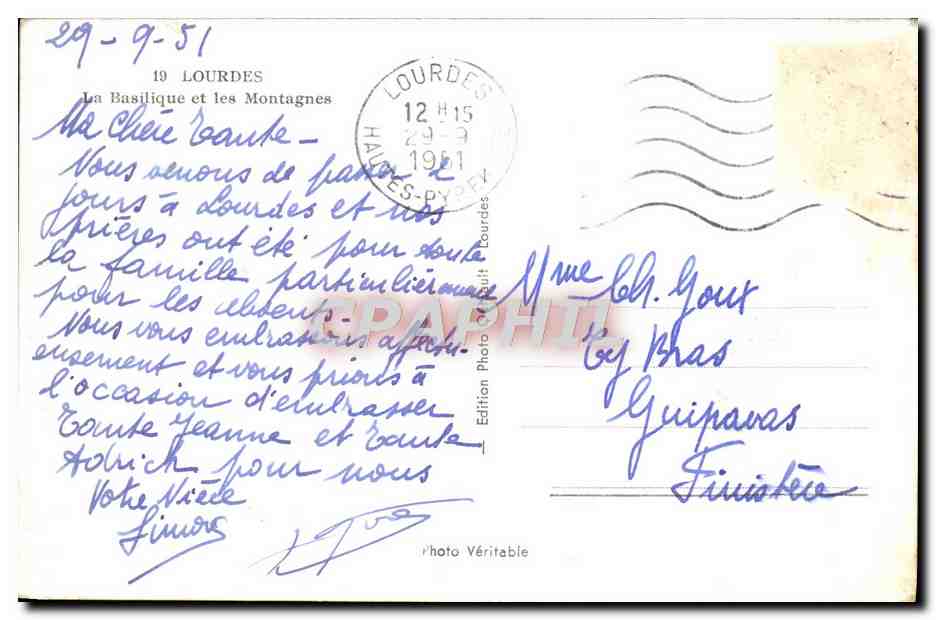 29-9-51
19 LOURDES
La Basilique et les Montagnes
Ma Chère Tante -
Nous venons de passer 2
jours à Lourdes et nos
prières ont été pour toute
la famille particulièrement
pour les absents.
Nous vous embrassons affectu-
eusement et vous prions à
l'occasion d'embrasser
Tante Jeanne et Tante
Adrich pour nous
Votre Nièce
Simone
Photo Véritable
Edition Photo Lourdes
LOURDES
12 H 15
29-9
1951
HAUTES-PYREN
CPAPHIL
Mme Ch. Goux
Ty Bras
Guipavas
Finistère